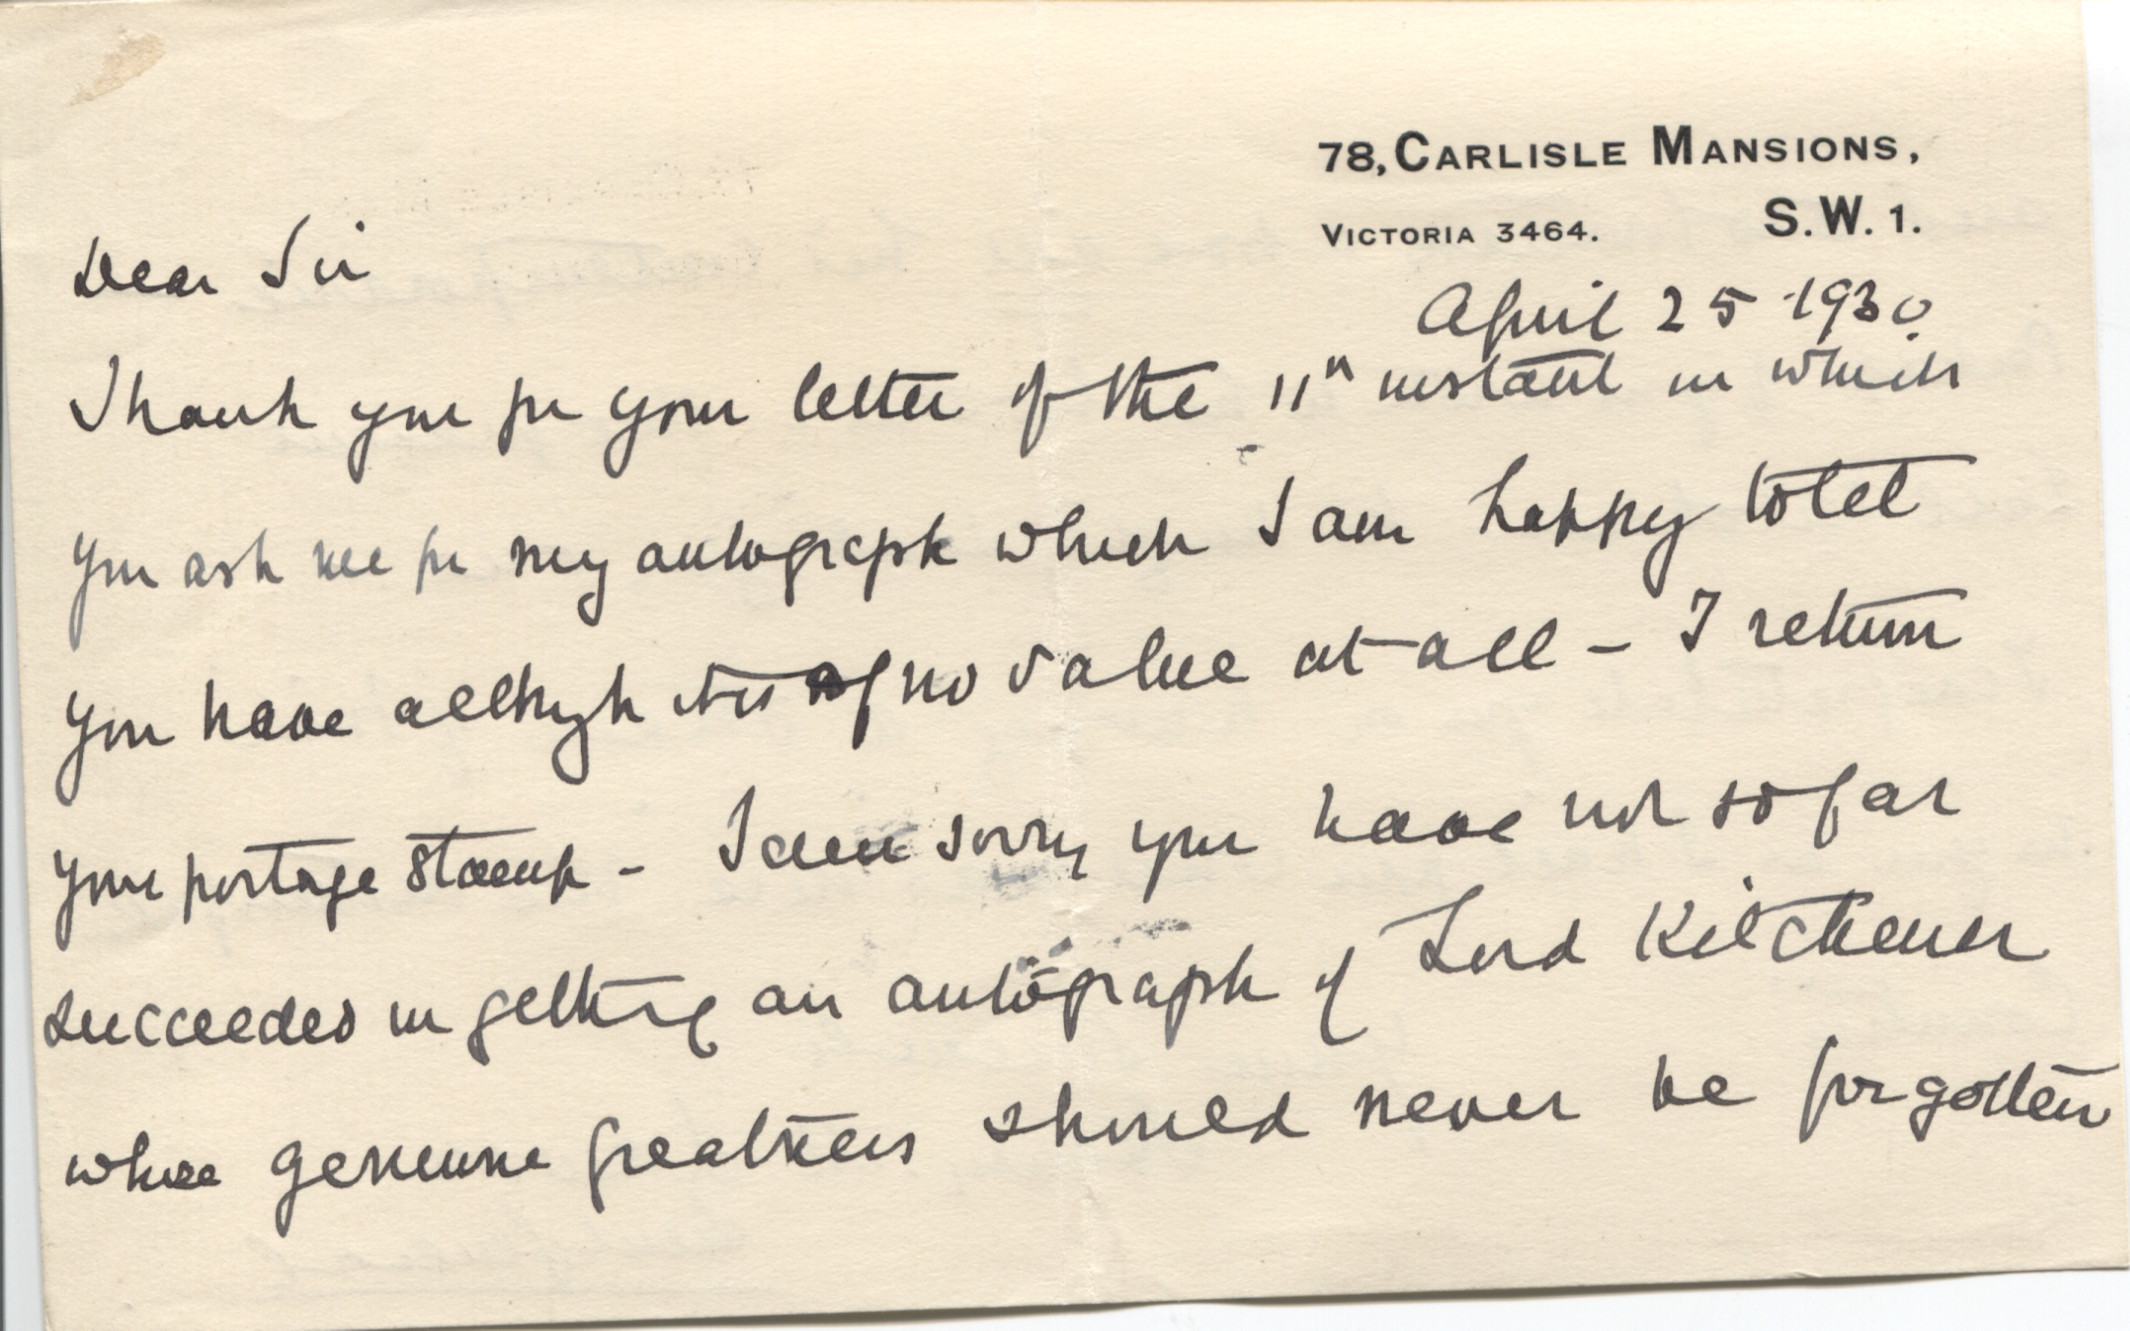 78, CARLISLE MANSIONS,
VICTORIA 3464. S.W. 1.
April 25 1930.
Dear Sir
Thank you for your letter of the 11th instant in which
you ask me for my autograph which I am happy to let
you have although it is of no value at all – I return
your postage stamp – I am sorry you have not so far
succeeded in getting an autograph of Lord Kitchener
whose genuine greatness should never be forgotten